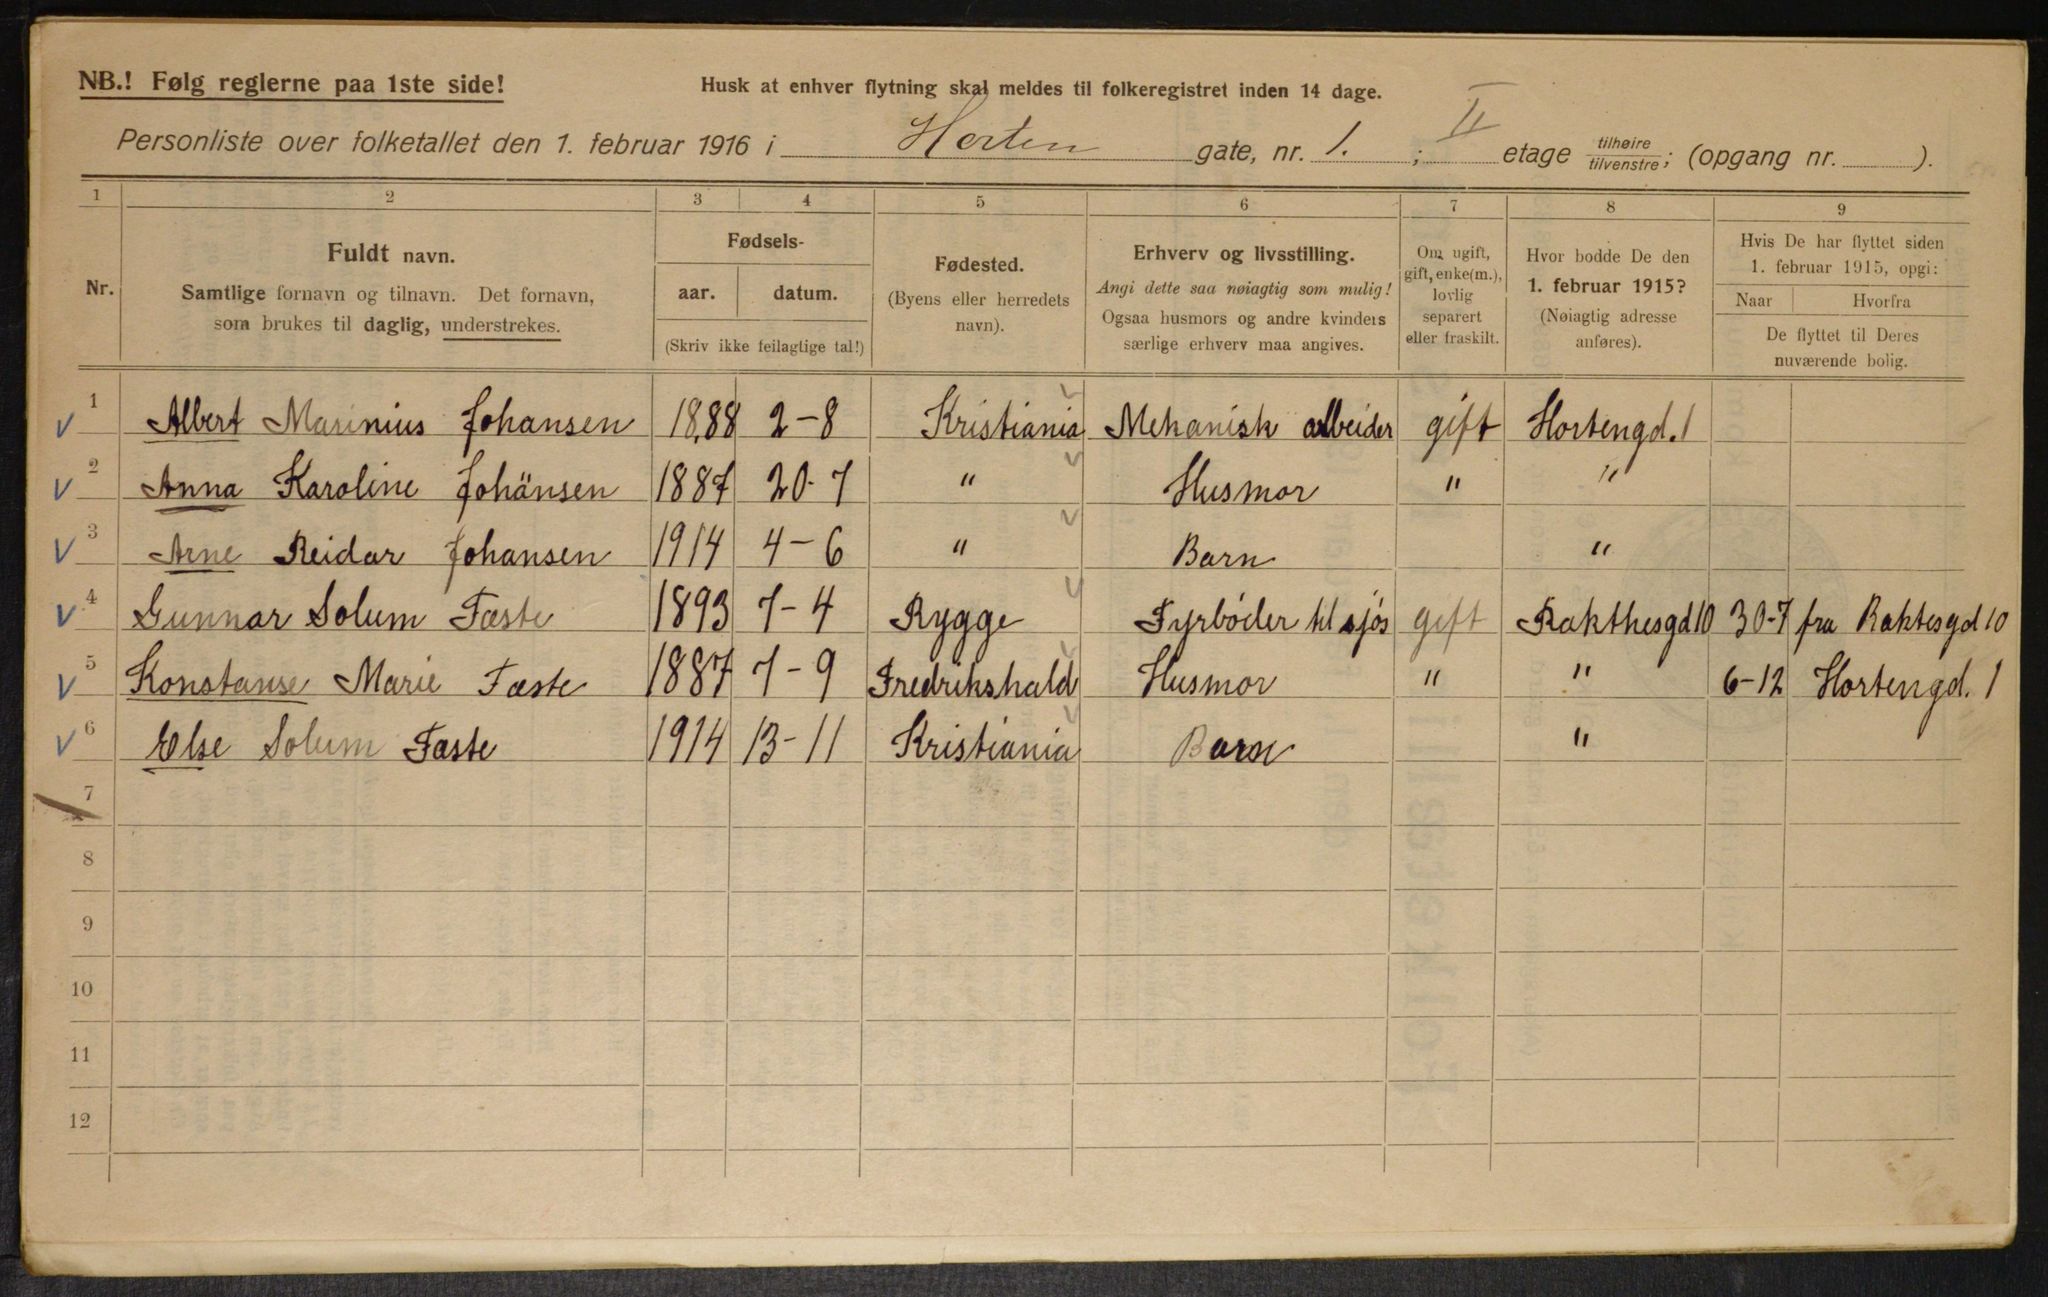 NB.! Følg reglerne paa 1ste side! Husk at enhver flytning skal meldes til folkeregistret inden 14 dage.
Personliste over folketallet den 1. februar 1916 i Horten gate, nr. 1. ; II etage tilhøire/tilvenstre; (opgang nr. ).
1 2 3 4 5 6 7 8 9
Nr.
Fuldt navn.
Samtlige fornavn og tilnavn. Det fornavn,
som brukes til daglig, understrekes.
Fødsels-
aar. datum.
(Skriv ikke feilagtige tal!)
Fødested.
(Byens eller herredets
navn).
Erhverv og livsstilling.
Angi dette saa nøiagtig som mulig!
Ogsaa husmors og andre kvinders
særlige erhverv maa angives.
Om ugift,
gift, enke(m.),
lovlig
separert
eller fraskilt.
Hvor bodde De den
1. februar 1915?
(Nøiagtig adresse
anføres).
Hvis De har flyttet siden
1. februar 1915, opgi:
Naar Hvorfra
De flyttet til Deres
nuværende bolig.
1 Albert Marinius Johansen 18,88 2-8 Kristiania Mekanisk arbeider gift Hortengd. 1
2 Anna Karoline Johänsen 1887 20-7 " Husmor " "
3 Arne Reidar Johansen 1914 4-6 " Barn "
4 Gunnar Solum Tæste 1893 7-4 Rygge Fyrbøder til sjøs gift Rakthesgd 10 30-7 fra Raktesgd 10
5 Konstanse Marie Tæste 1887 7-9 Fredrikshald Husmor " " 6-12 Hortengd. 1
6 Else Solum Tæste 1914 13-11 Kristiania Barn "
7
8
9
10
11
12